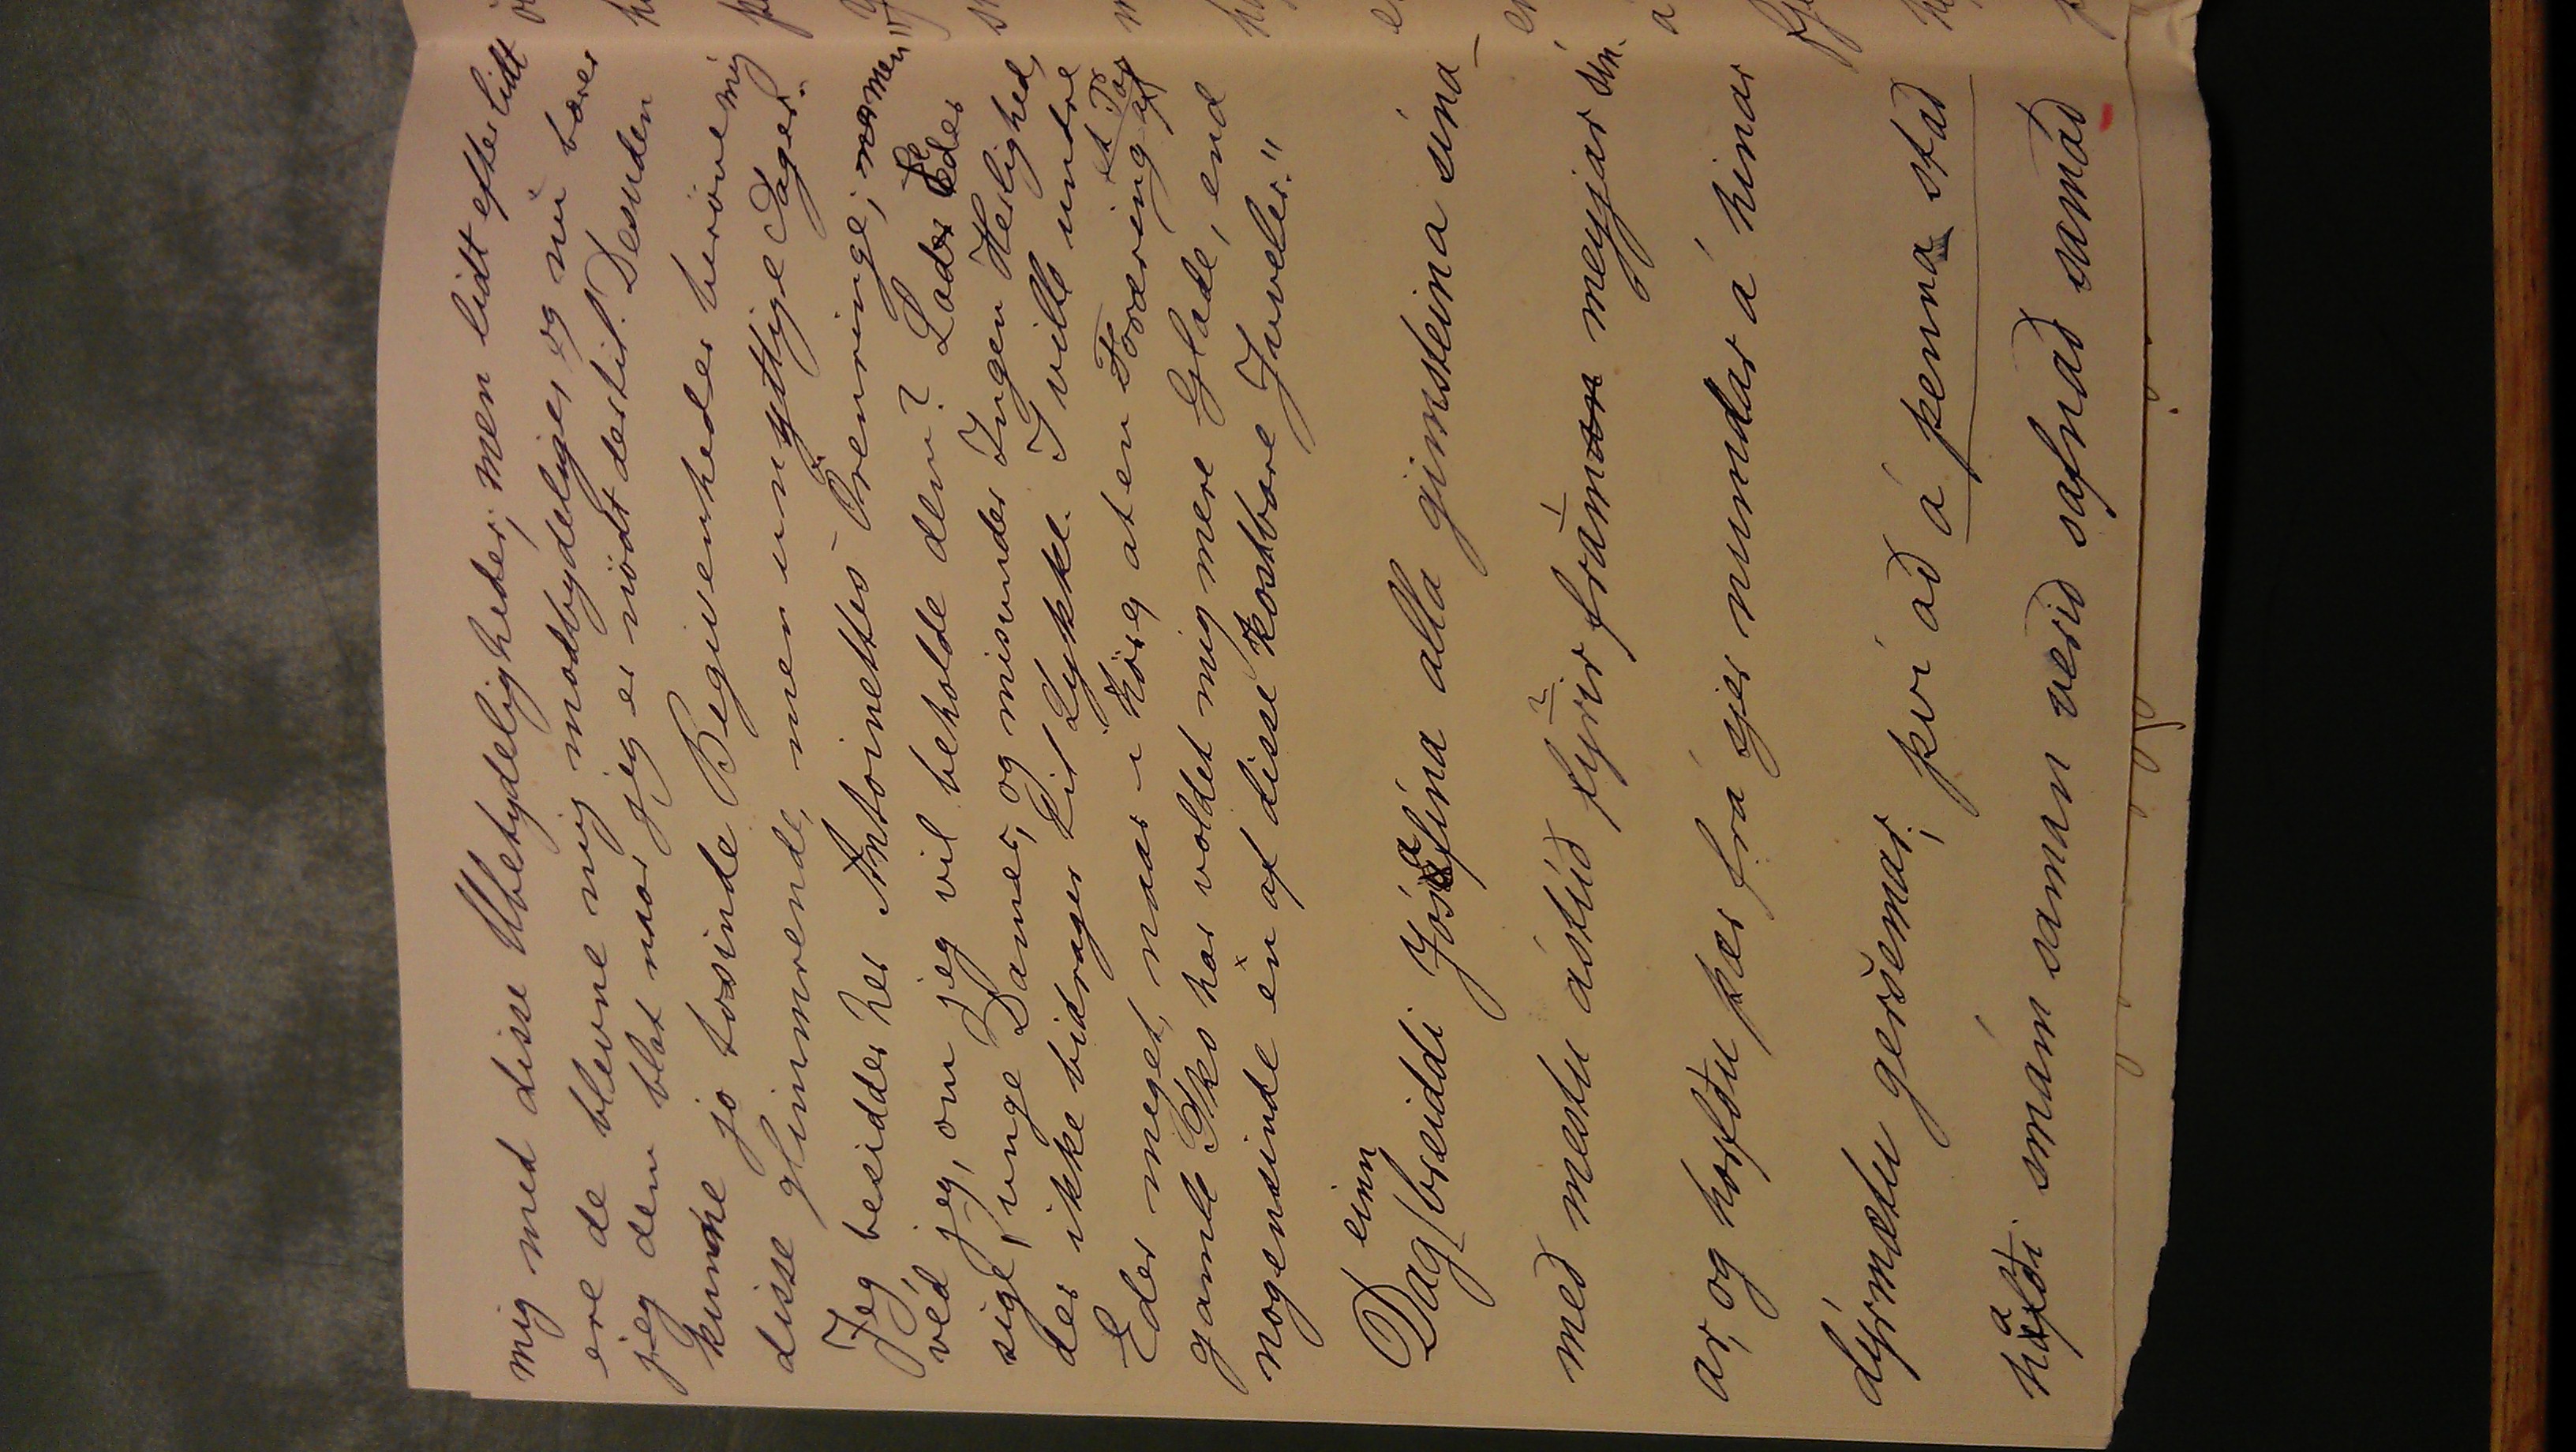 mig med disse Ubetydeligheder; men lidt efter lidt
ere de blevne mig modbydelige, og nu bærer
jeg dem blot naar jeg er nödt dertil. Desuden
kunne jo tosinde Begivenheder beröve mig
disse glimrende, men unyttige Sager.
Jeg besidder her Antoinettes Örenringe; nomen
véd jeg, om jeg vil beholde dem? Lader Eder
sige, unge Damer, og misunder Ingen Herlighed,
der ikke bidrager til Lykke. I ville undre
Eder meget, naar i hörer at en Foræring af et Par
gamle Sko har voldet mig mere Glæde, end
nogensinde én af disse kostbare Juveler."
Dag einn breiddi Jósafína alla gimsteina sína
með mestu ástúð fyrir framan meyjar sín-
ar, og horfðu þær frá sjer numdar á hinar
dýrmætu gersemar; því að á þenna stað
hafði smám saman verið safnað saman